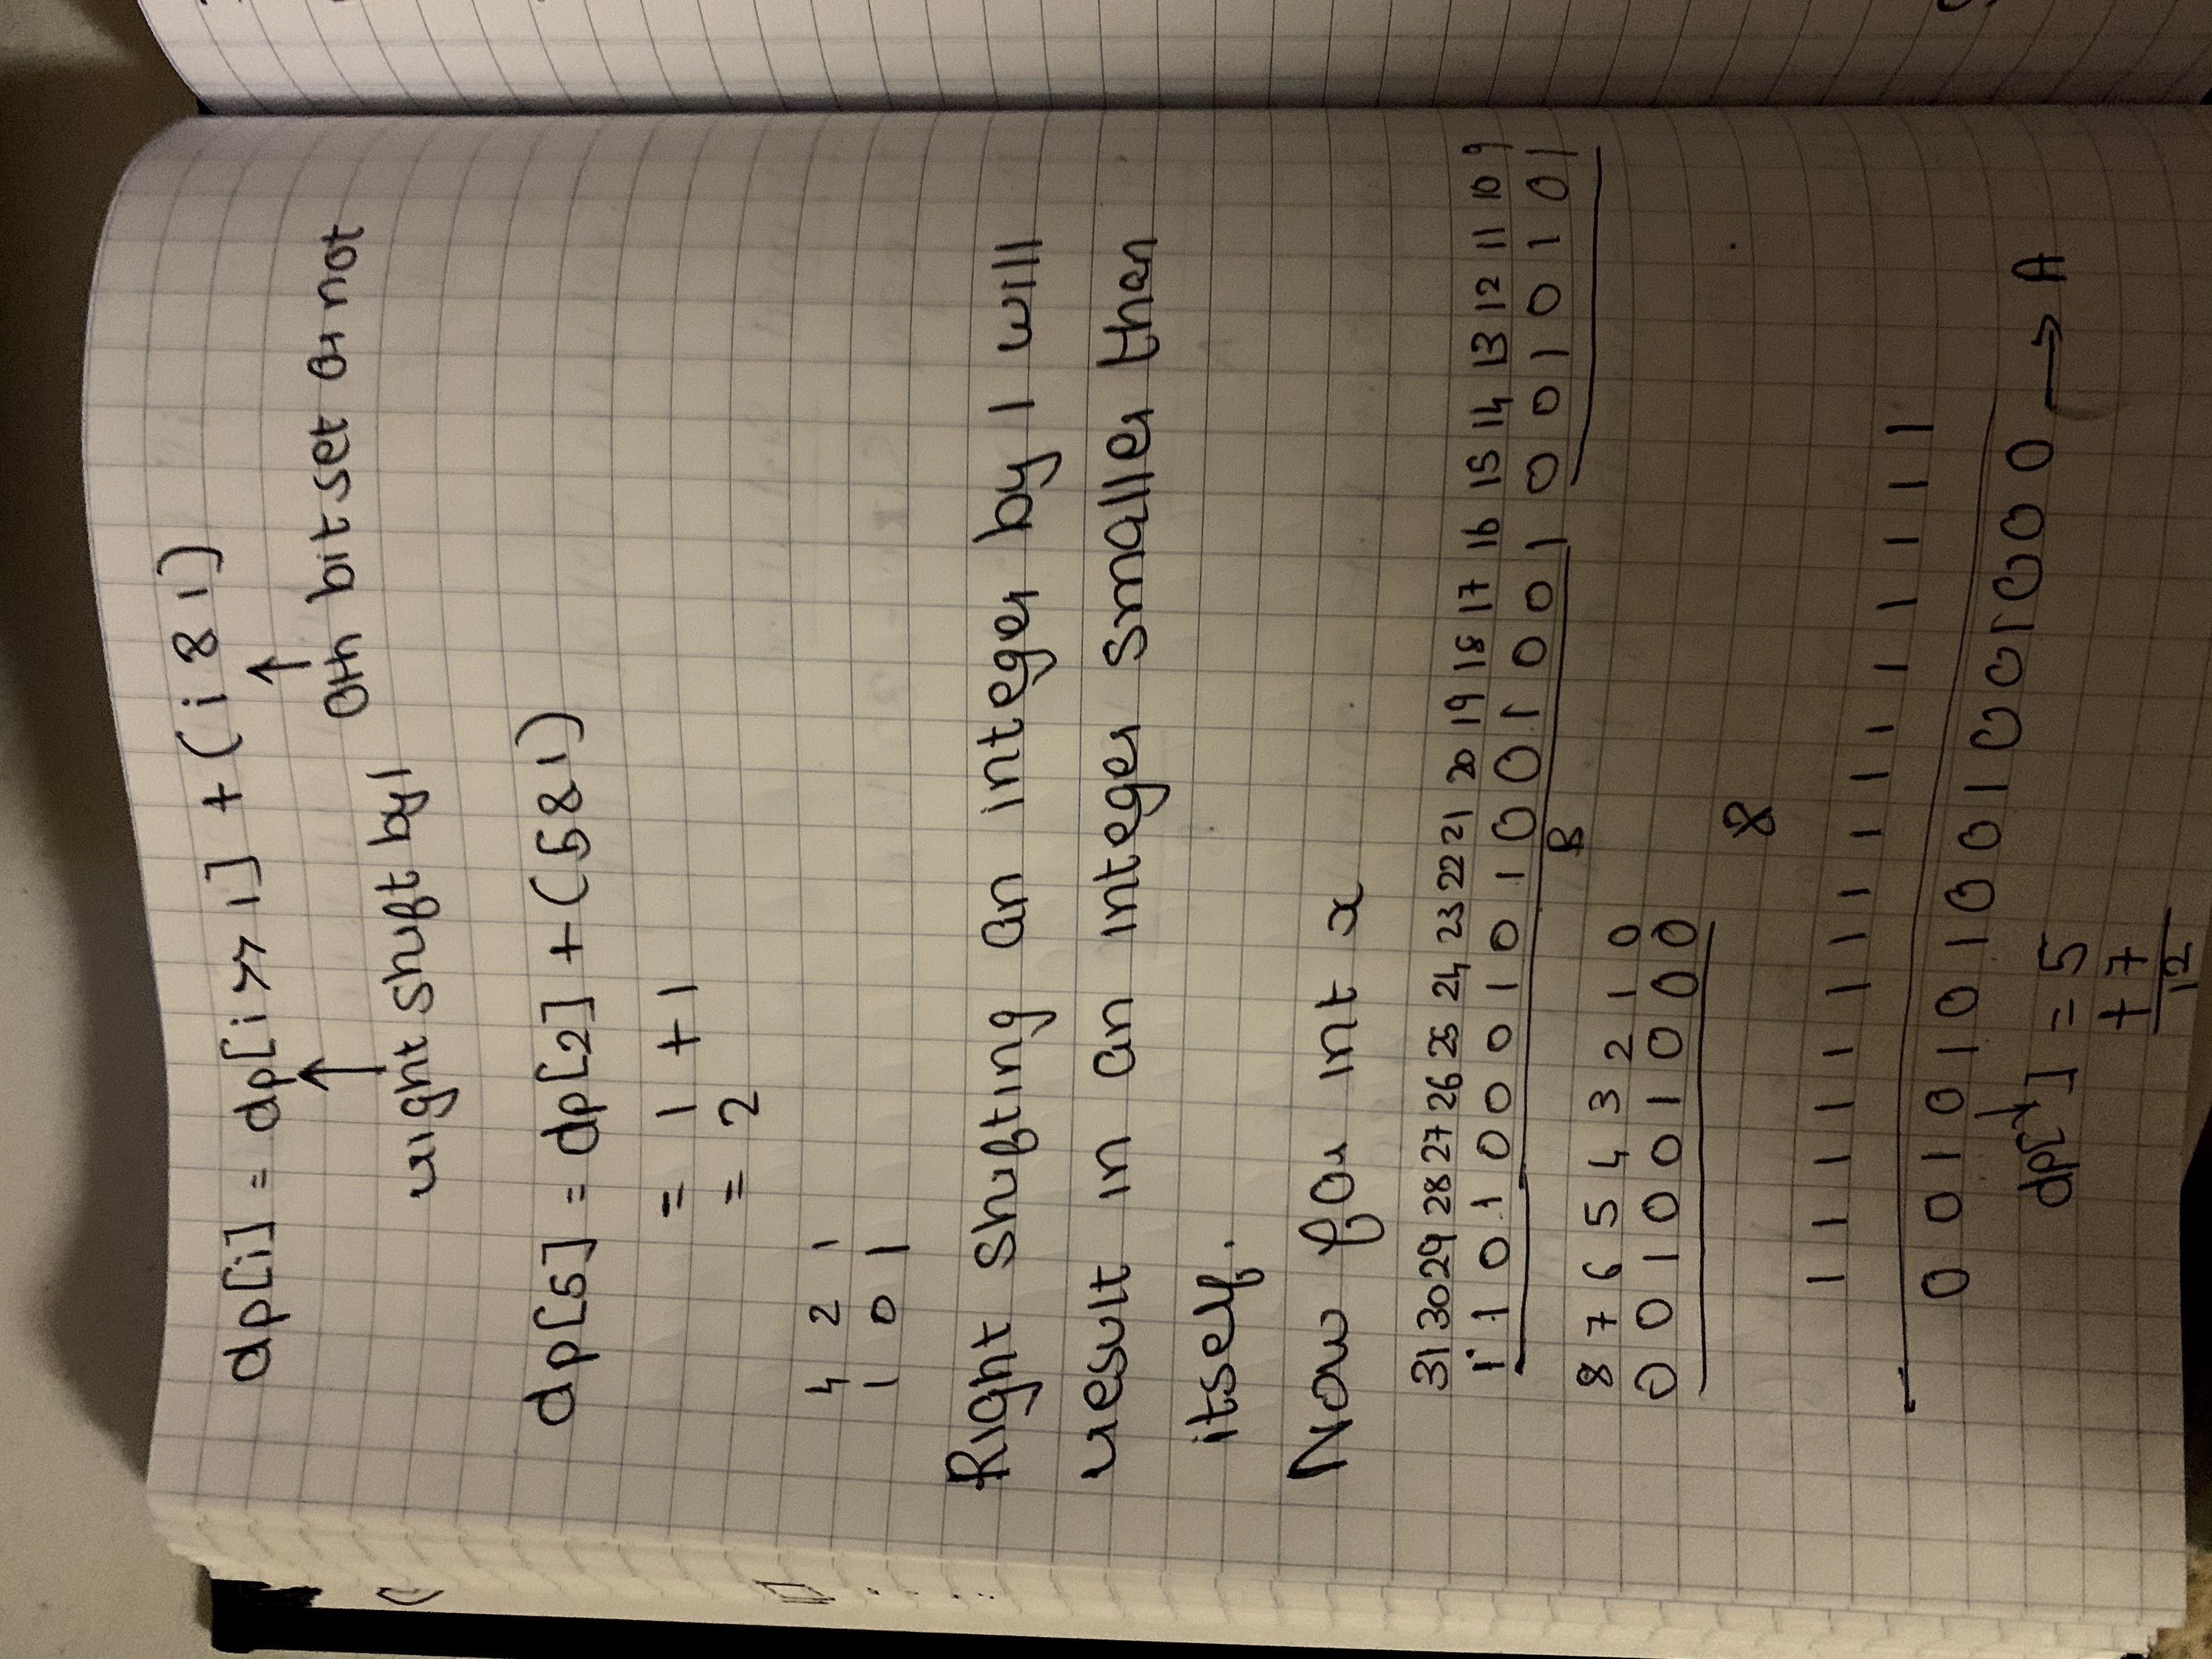 dp[i] = dp[i >> 1] + (i & 1)
↑ ↑
0th bit set or not
right shift by 1
dp[5] = dp[2] + (5 & 1)
= 1 + 1
= 2
4 2 1
1 0 1
Right shifting an integer by 1 will
result in an integer smaller than
itself.
Now for int x
31 30 29 28 27 26 25 24 23 22 21 20 19 18 17 16 15 14 13 12 11 10 9
1 1 0 1 0 0 0 1 0 1 0 0 1 0 0 1 0 0 1 0 1 0 1
B
8 7 6 5 4 3 2 1 0
0 0 1 0 0 1 0 0 0
&
1 1 1 1 1 1 1 1 1 1 1 1 1 1 1 1
0 0 1 0 1 0 1 0 0 1 0 0 1 0 0 0 → A
dp[↓] = 5
+ 7
12